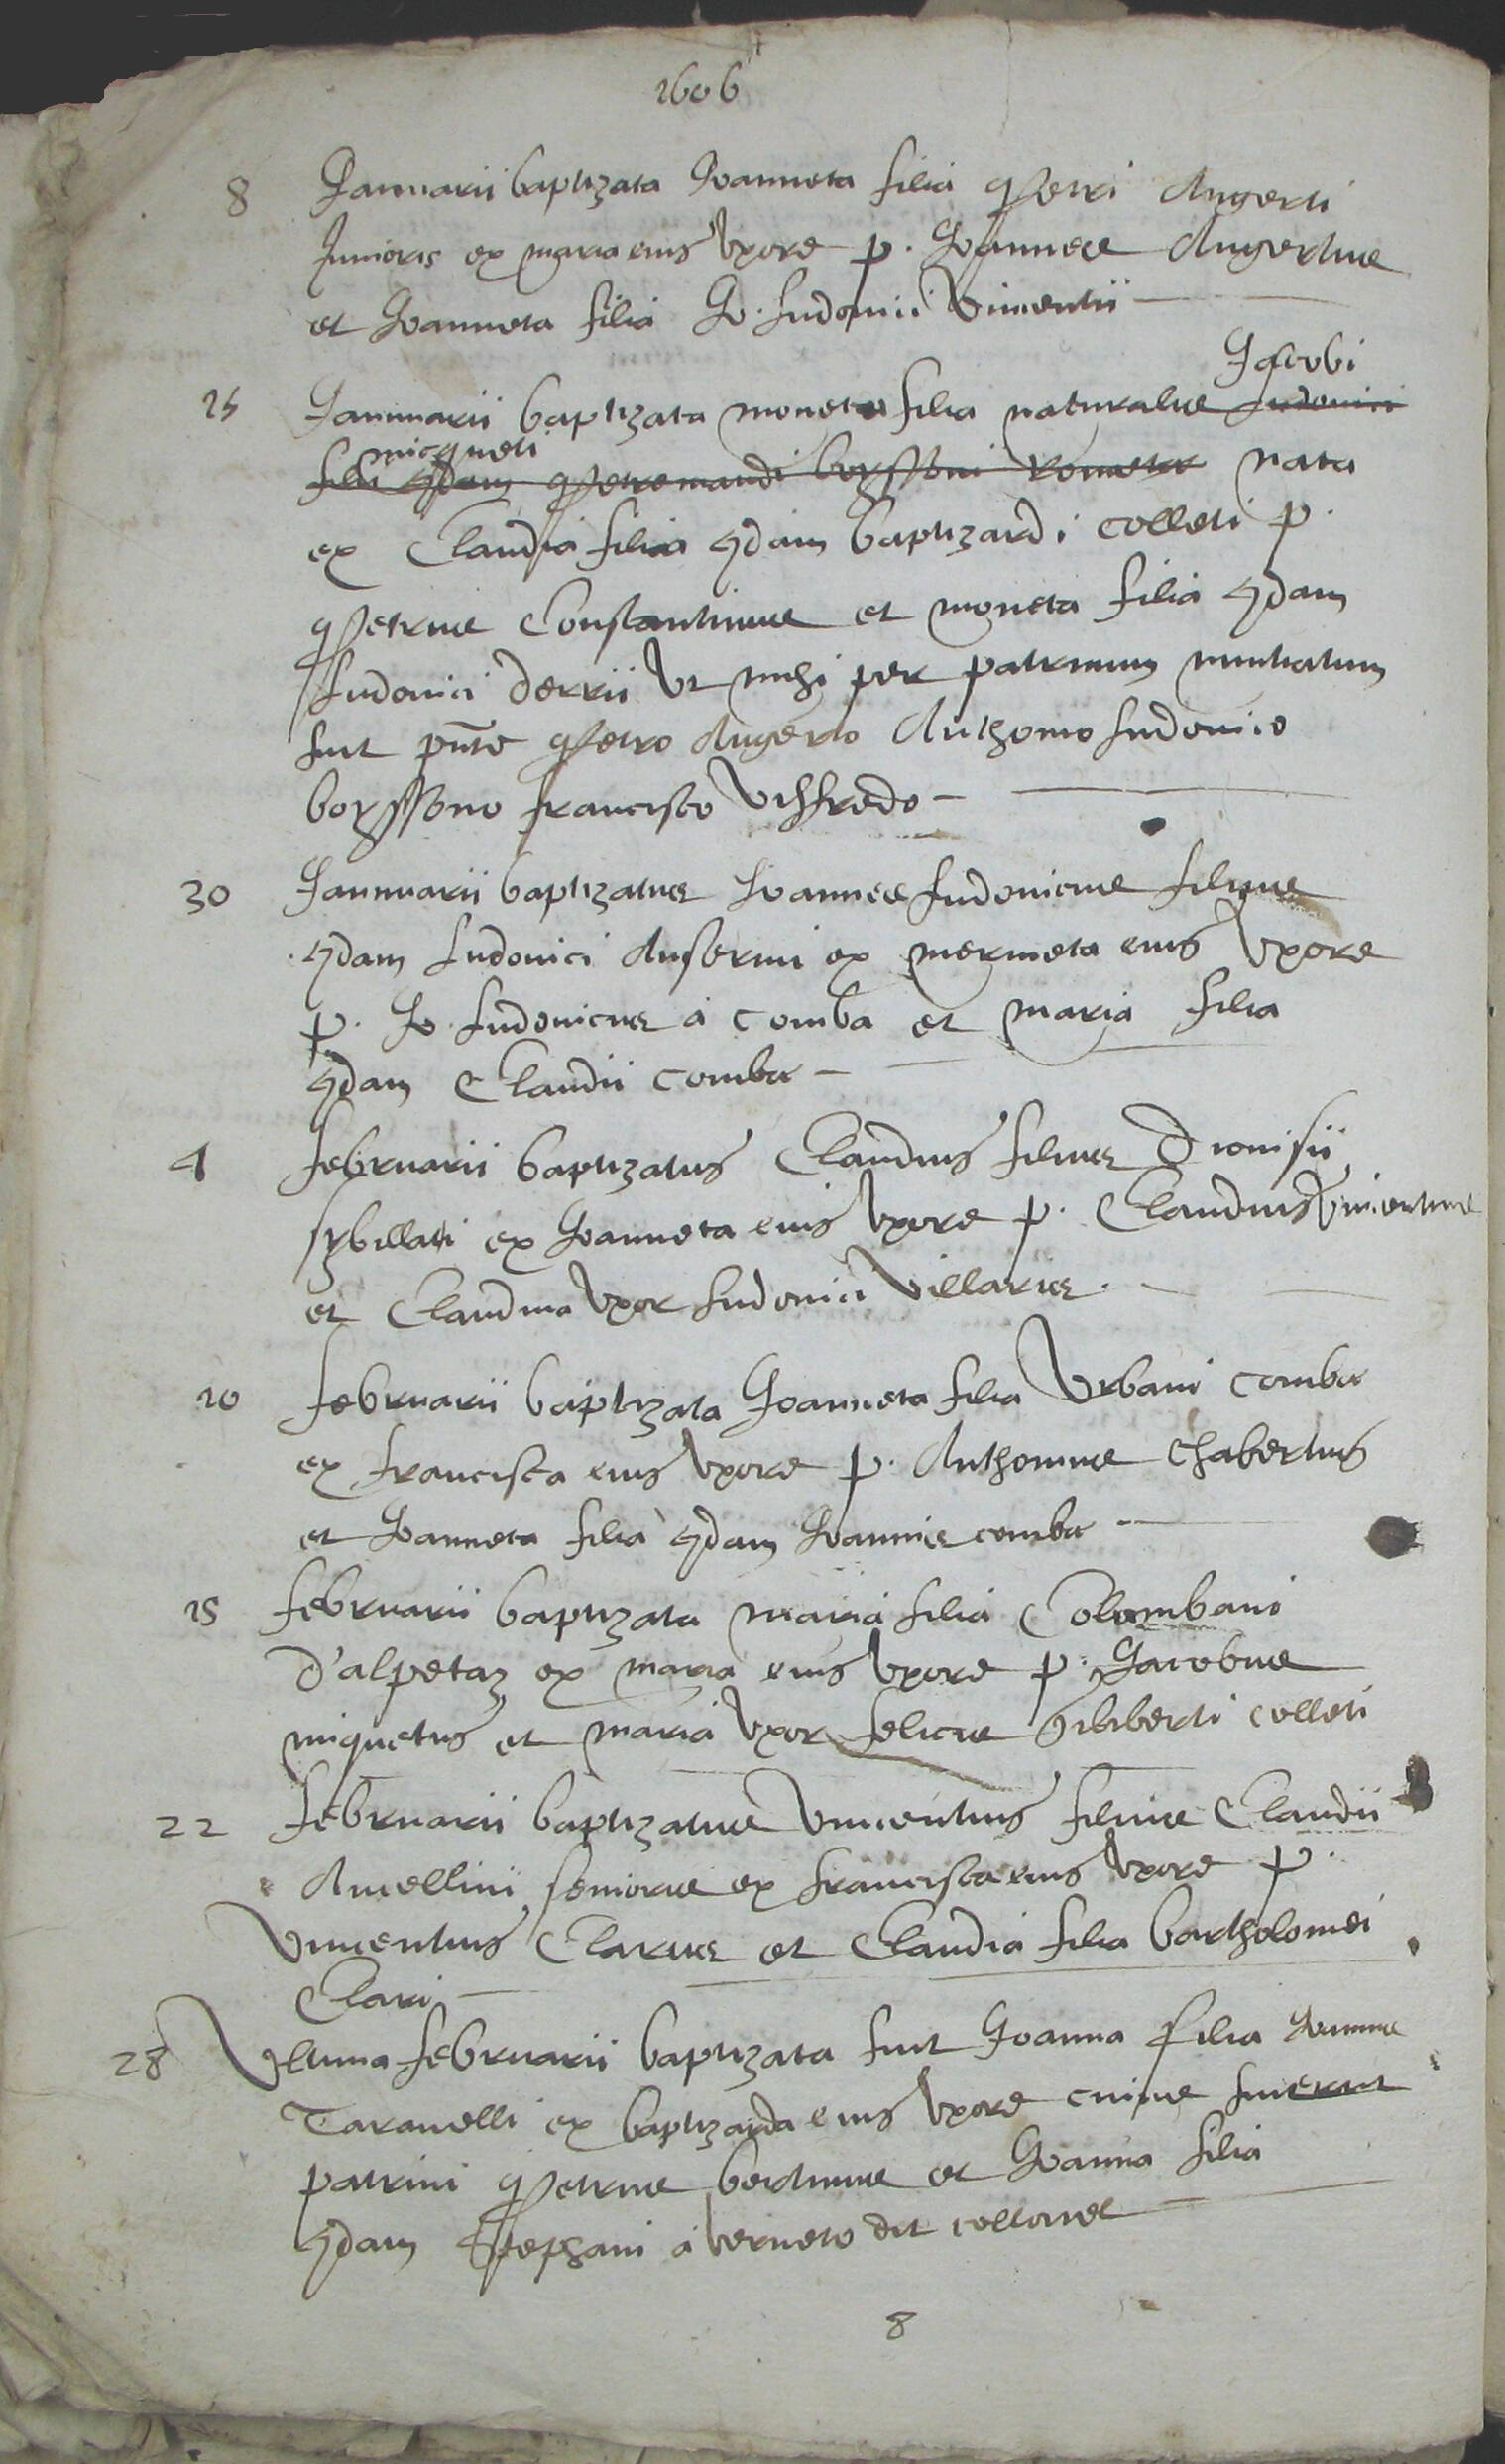 1606
8 Januarii baptizata Joanneta filia Petri Angerti
Junioris ex maria eius Uxore p. Joannes Angertus
et Joanneta filia Jo. Ludovici Vincentii
Jacobi
25 Jannuarii baptizata moneta filia naturalis Ludovici
micqueti
filii qdam Petremandi boyssoni nata
ex Claudia filia qdam baptizardi colleti p.
Petrus Constantinus et moneta filia qdam
Ludovici derrii Ut mihi per patrinum nuntiatum
fuit pnte Petro Angerto Anthonio Ludovico
boyssono francisco Viffredo
30 Jannuarii baptizatus Joannes Ludovicus filius
qdam Ludovici Ansermi ex mermeta eius Uxore
p. Jo. Ludovicus a comba et maria filia
qdam Claudii comba
4 februarii baptizatus Claudius filius Dionisii
sybillati ex Joanneta eius Uxore p. Claudius Vincentius
et Claudina Uxor Ludovici Villarus.
10 februarii baptizata Joanneta filia Urbani comba
ex francisca eius Uxore p. Anthonius chabertus
et Joanneta filia qdam Joannis comba
15 februarii baptizata maria filia Colombani
d'alpetaz ex maria eius Uxore p. Jacobus
miquetus et maria Uxor felicis Giliberti colleti
22 februarii baptizatus Vincentius filius Claudii
Ancellini senioris ex francisca eius Uxore p.
Vincentius Clarus et Claudia filia bartholomei
Clari
28 Ultima februarii baptizata fuit Joanna filia
Taravelli ex baptizarda eius Uxore cuius fuerunt
patrini Petrus bertinus et Joanna filia
qdam Stephani a Verneto dit collonel
8